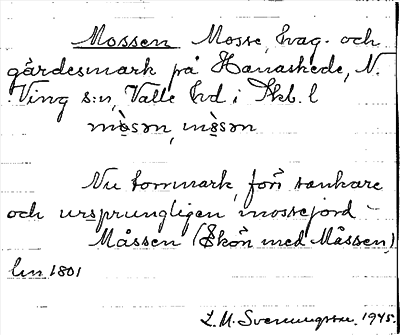 Mossen Mosse, hag- och
gärdesmark på Hanaskede, N.
Ving s:n, Valle hd i Skb. l
mòsən, mòsən
Nu tornmark, förr sankare
och ursprungligen mossejord
Måssen (Ekön med Måssen)
lm 1801
L. M. Svenungsson. 1945.